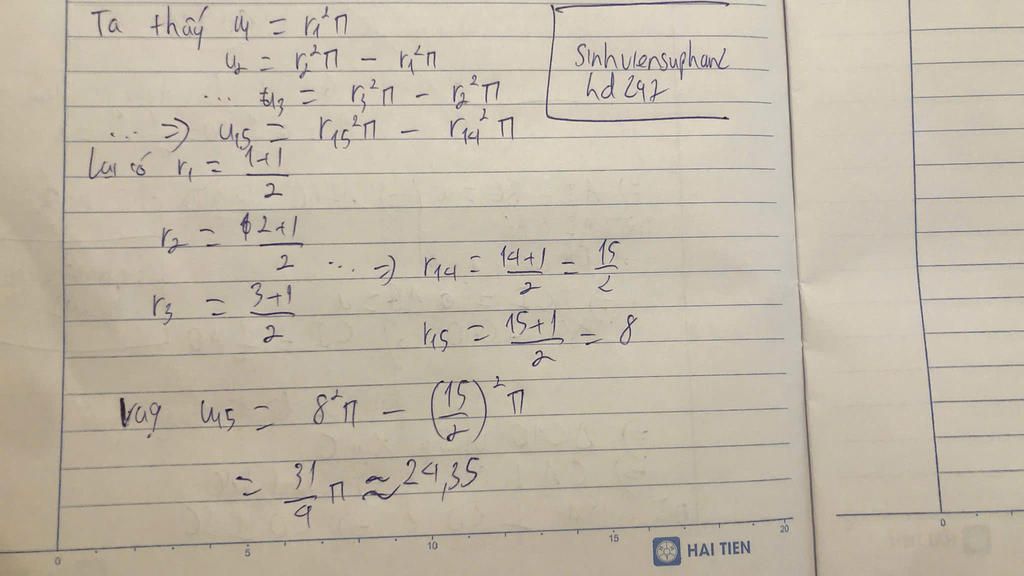 Ta thấy u₁ = r₁²π
u₂ = r₂²π − r₁²π
... u₃ = r₃²π − r₂²π
... => u₁₅ = r₁₅²π − r₁₄²π
Sinhviensuphamc
hd 247
Lại có r₁ = (1+1)/2
r₂ = (2+1)/2
... => r₁₄ = (14+1)/2 = 15/2
r₃ = (3+1)/2
r₁₅ = (15+1)/2 = 8
Vậy u₁₅ = 8²π − (15/2)²π
= 31/4 π ≈ 24,35
0 5 10 15 20
HAI TIEN
0